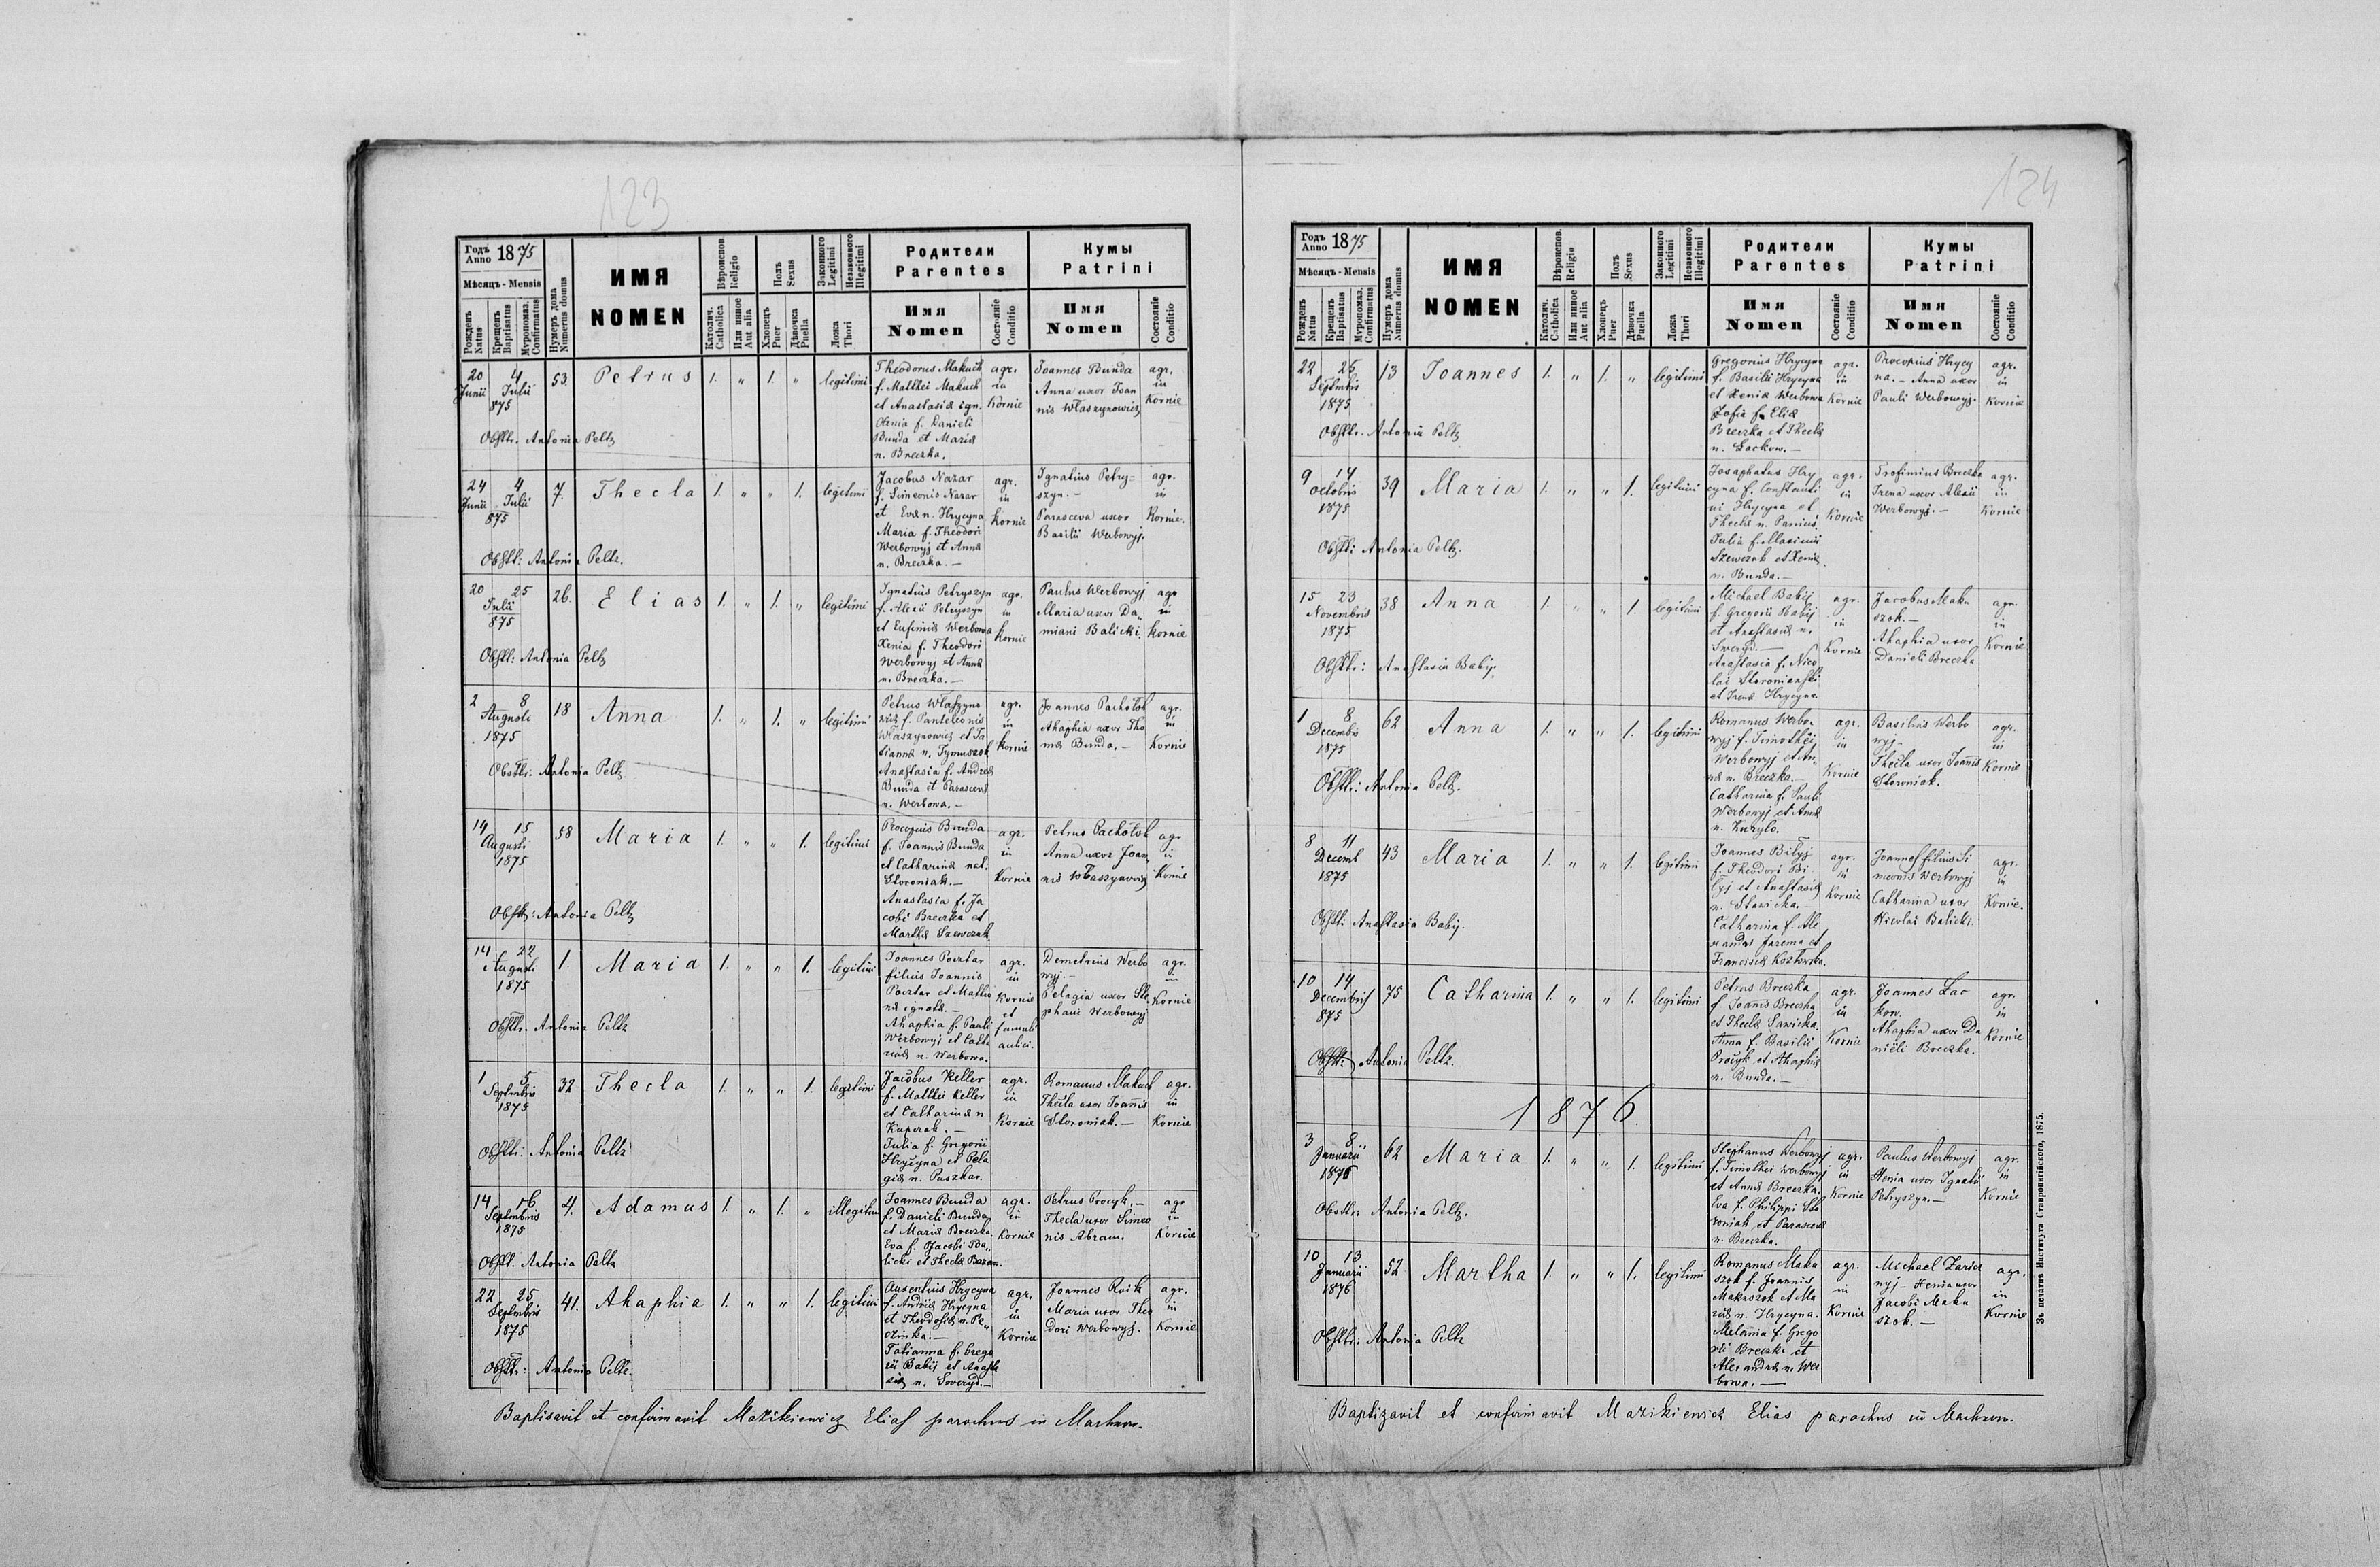 123
Годъ Anno 1875
Мѣсяцъ - Mensis
Рожденъ Natus
Крещенъ Baptisatus
Мѵропомаз. Confirmatus
Нумеръ дома Numerus domus
ИМЯ
NOMEN
Вѣроиспов. Religio
Католич. Catholica
Или иное Aut alia
Полъ Sexus
Хлопецъ Puer
Дѣвочка Puella
Законного Legitimi
Незаконного Illegitimi
Ложа Thori
Родители
Parentes
Имя
Nomen
Состоянiе Conditio
Кумы
Patrini
Имя
Nomen
Состоянiе Conditio
20 4 53. Petrus 1. „ 1. „ legitimi
Junii Julii
875
Theodorus Makuch
f. Matthei Makuch
et Anastasiæ ign.
Xenia f. Danieli
Bunda et Mariæ
n. Breczka.
agr.
in
Kornie
Joannes Bunda
Anna uxor Joan
nis Właszynowicz
agr.
in
Kornie
Obsttr. Antonia Peltz
24 4 7. Thecla 1. „ „ 1. legitimi
Junii Julii
875
Jacobus Nazar
f. Simeonis Nazar
et Evæ n. Hrycyna
Maria f. Theodori
Werbowyj et Annæ
n. Breczka. —
agr.
in
Kornie
Ignatius Petry=
szyn. —
Parasceva uxor
Basilii Werbowyj.
agr.
in
Kornie.
Obstt: Antonia Peltz.
20 25 26. Elias 1. „ 1. „ legitimi
Julii
875
Ignatius Petryszyn
f. Alexii Petryszyn
et Eufimiæ Werbowa
Xenia f. Theodori
Werbowyj et Annæ
n. Breczka. —
agr.
in
Kornie
Paulus Werbowyj
Maria uxor Da„
miani Balicki.
agr
in
Kornie
Obstt: Antonia Peltz
2 8 18 Anna 1. „ 1. „ legitimi
Augusti
1875
Petrus Właszyno
wicz f. Panteleonis
Właszynowicz et Ta
tianna n. Tymuszok
Anastasia f. Andreæ
Bunda et Parascevæ
n. Werbowa. —
agr.
in
Kornie
Joannes Pachołok
Ahaphia uxor Tho
mæ Bunda, —
agr.
in
Kornie
Obsttr: Antonia Peltz
14 15 58 Maria 1. „ „ 1. legitimi
Augusti
1875
Procopius Bunda
f. Joannis Bunda
et Catharinæ nat.
Storoniak. —
Anastasia f. Ja
cobi Breczka et
Marthæ Szewczuk
agr.
in
Kornie
Petrus Pachołok
Anna uxor Joan„
nis Właszynowicz
agr
in
Kornie
Obsttr: Antonia Peltz
14 22 1. Maria 1. „ „ 1. legitimi
Augusti
1875
Joannes Pocztar
filius Joannis
Pocztar et Mathro
næ ignotæ. —
Ahaphia f. Pauli
Werbowyj et Catha
rinæ n. Werbowa.
agr.
in
Kornie
et
famuli
aulici.
Demetrius Werbo
wyj. —
Pelagia uxor Ste
phani Werbowyj
agr.
in
Kornie
Obsttr. Antonia Peltz
1 5 32 Thecla 1. „ „ 1. legitimi
Septembris
1875
Jacobus Keller
f. Matthei Keller
et Catharinæ n
Kuperak. —
Julia f. Gregorii
Hrycyna et Pela
giæ n. Puszkar.
agr.
in
Kornie
Romanus Makuch
Thecla uxor Joannis
Storoniak. —
agr.
in
Kornie
Obsttr: Antonia Peltz
14 16 4. Adamus 1. „ 1. „ illegitimi
Septembris
1875
Joannes Bunda
f. Danieli Bunda
et Mariæ Breczka
Eva f. Jacobi Ba„
licki et Theclæ Bazan.
agr.
in
Kornie
Petrus Procyk. —
Thecla uxor Simeo
nis Abram.
agr
in
Kornie
Obstt. Antonia Peltz
22 25 41. Ahaphia 1. „ „ 1. legitimi
Septembris
1875
Auxentius Hrycyna
f. Andreæ Hrycyna
et Theodosiæ n. Pe„
czinka. —
Tatianna f. Grego
rii Babij et Anasta
siæ n. Sweryd. —
agr.
in
Kornie
Joannes Roik
Maria uxor Theo
dori Werbowyj.
agr.
in
Kornie
Obsttr: Antonia Peltz.
Baptisavit et confirmavit Mazikiewicz Elias parochus in Machnow.
124
Годъ Anno 1875
Мѣсяцъ - Mensis
Рожденъ Natus
Крещенъ Baptisatus
Мѵропомаз. Confirmatus
Нумеръ дома Numerus domus
ИМЯ
NOMEN
Вѣроиспов. Religio
Католич. Catholica
Или иное Aut alia
Полъ Sexus
Хлопецъ Puer
Дѣвочка Puella
Законного Legitimi
Незаконного Illegitimi
Ложа Thori
Родители
Parentes
Имя
Nomen
Состоянiе Conditio
Кумы
Patrini
Имя
Nomen
Состоянiе Conditio
22 25 13 Joannes 1. „ 1. „ legitimi
Septembris
1875
Gregorius Hrycyna
f. Basilii Hrycyna
et Xeniæ Werbowa
Zofia f. Eliæ
Breczka et Theclæ
n. Lackow. —
agr.
in
Kornie
Procopius Hrycy
na. — Anna uxor
Pauli Werbowyj.
agr.
in
Kornie
Obsttr. Antonia Peltz
9 14 39 Maria 1. „ „ 1. legitimi
Octobris
1875
Josaphatus Hry
cyna f. Constanti
ni Hrycyna et
Theclæ n. Panius.
Julia f. Maximi
Szewczuk et Xeniæ
n. Bunda. —
agr.
in
Kornie
Trofimius Breczka
Irena uxor Alexii
Werbowyj. —
agr.
in
Kornie
Obstt: Antonia Peltz.
15 23 38 Anna 1. „ „ 1. legitimi
Novembris
1875
Michael Babij
f. Gregorii Babij
et Anastasiæ n.
Sweryd. —
Anastasia f. Nico
lai Storonianski
et Irenæ Hrycyna.
agr.
in
Kornie
Jacobus Maku
szok. —
Ahaphia uxor
Danieli Breczka
agr.
in
Kornie
Obsttr: Anastasia Babij.
1 8 62 Anna 1. „ „ 1. legitimi
Decembris
1875
Romanus Werbo„
wyj f. Timothëi
Werbowyj et An„
næ n. Breczka. —
Catharina f. Pauli
Werbowyj et Annæ
n. Kuryło.
agr.
in
Kornie
Basilius Werbo
wyj —
Thecla uxor Joannis
Storoniak.
agr.
in
Kornie
Obsttr: Antonia Peltz.
8 11 43 Maria 1. „ „ 1. legitimi
Decemb
1875
Joannes Biłyj
f. Theodori Bi
łyj et Anastasiæ
n. Stawicka. —
Catharina f. Ale
xandri Jarema et
Franciscæ Kozłowska.
agr.
in
Kornie
Joannes filius Si
meonis Werbowyj
Catharina uxor
Nicolai Balicki.
agr.
in
Kornie.
Obstt: Anastasia Babij.
10 14 75 Catharina 1. „ „ 1. legitimi
Decembris
875
Petrus Breczka
f Joannis Breczka
et Theclæ Sawicka
Anna f. Basilii
Procyk et Ahaphiæ
n. Bunda. —
agr.
in
Kornie
Joannes Lac
kow.
Ahaphia uxor Da
niëli Breczka.
agr.
in
Kornie
Obstt: Antonia Peltz.
1876.
3 8 62 Maria 1. „ „ 1. legitimi
Januarii
1876
Stephanus Werbowyj
f. Timothei Werbowyj
et Annæ Breczka.
Eva f. Philippi Sto
roniak et Parascevæ
n. Breczka.
agr.
in
Kornie
Paulus Werbowyj
Xenia uxor Ignatii
Petryszyn. —
agr.
in
Kornie
Obsttr: Antonia Peltz.
10 13 52 Martha 1. „ „ 1. legitimi
Januarii
1876
Romanus Maku
szok f. Joannis
Makuszok et Ma
riæ n. Hrycyna.
Melania f. Grego
rii Breczka et
Alexandræ n. Wer
bowa. —
agr.
in
Kornie
Michael
nyj — Xenia uxor
Jacobi Maku
szok. —
agr.
in
Kornie
Obsttr: Antonia Peltz
Baptizavit et confirmavit Mazikiewicz Elias parochus in Machnow.
Зъ печатнѣ Института Ставропигійского, 1875.